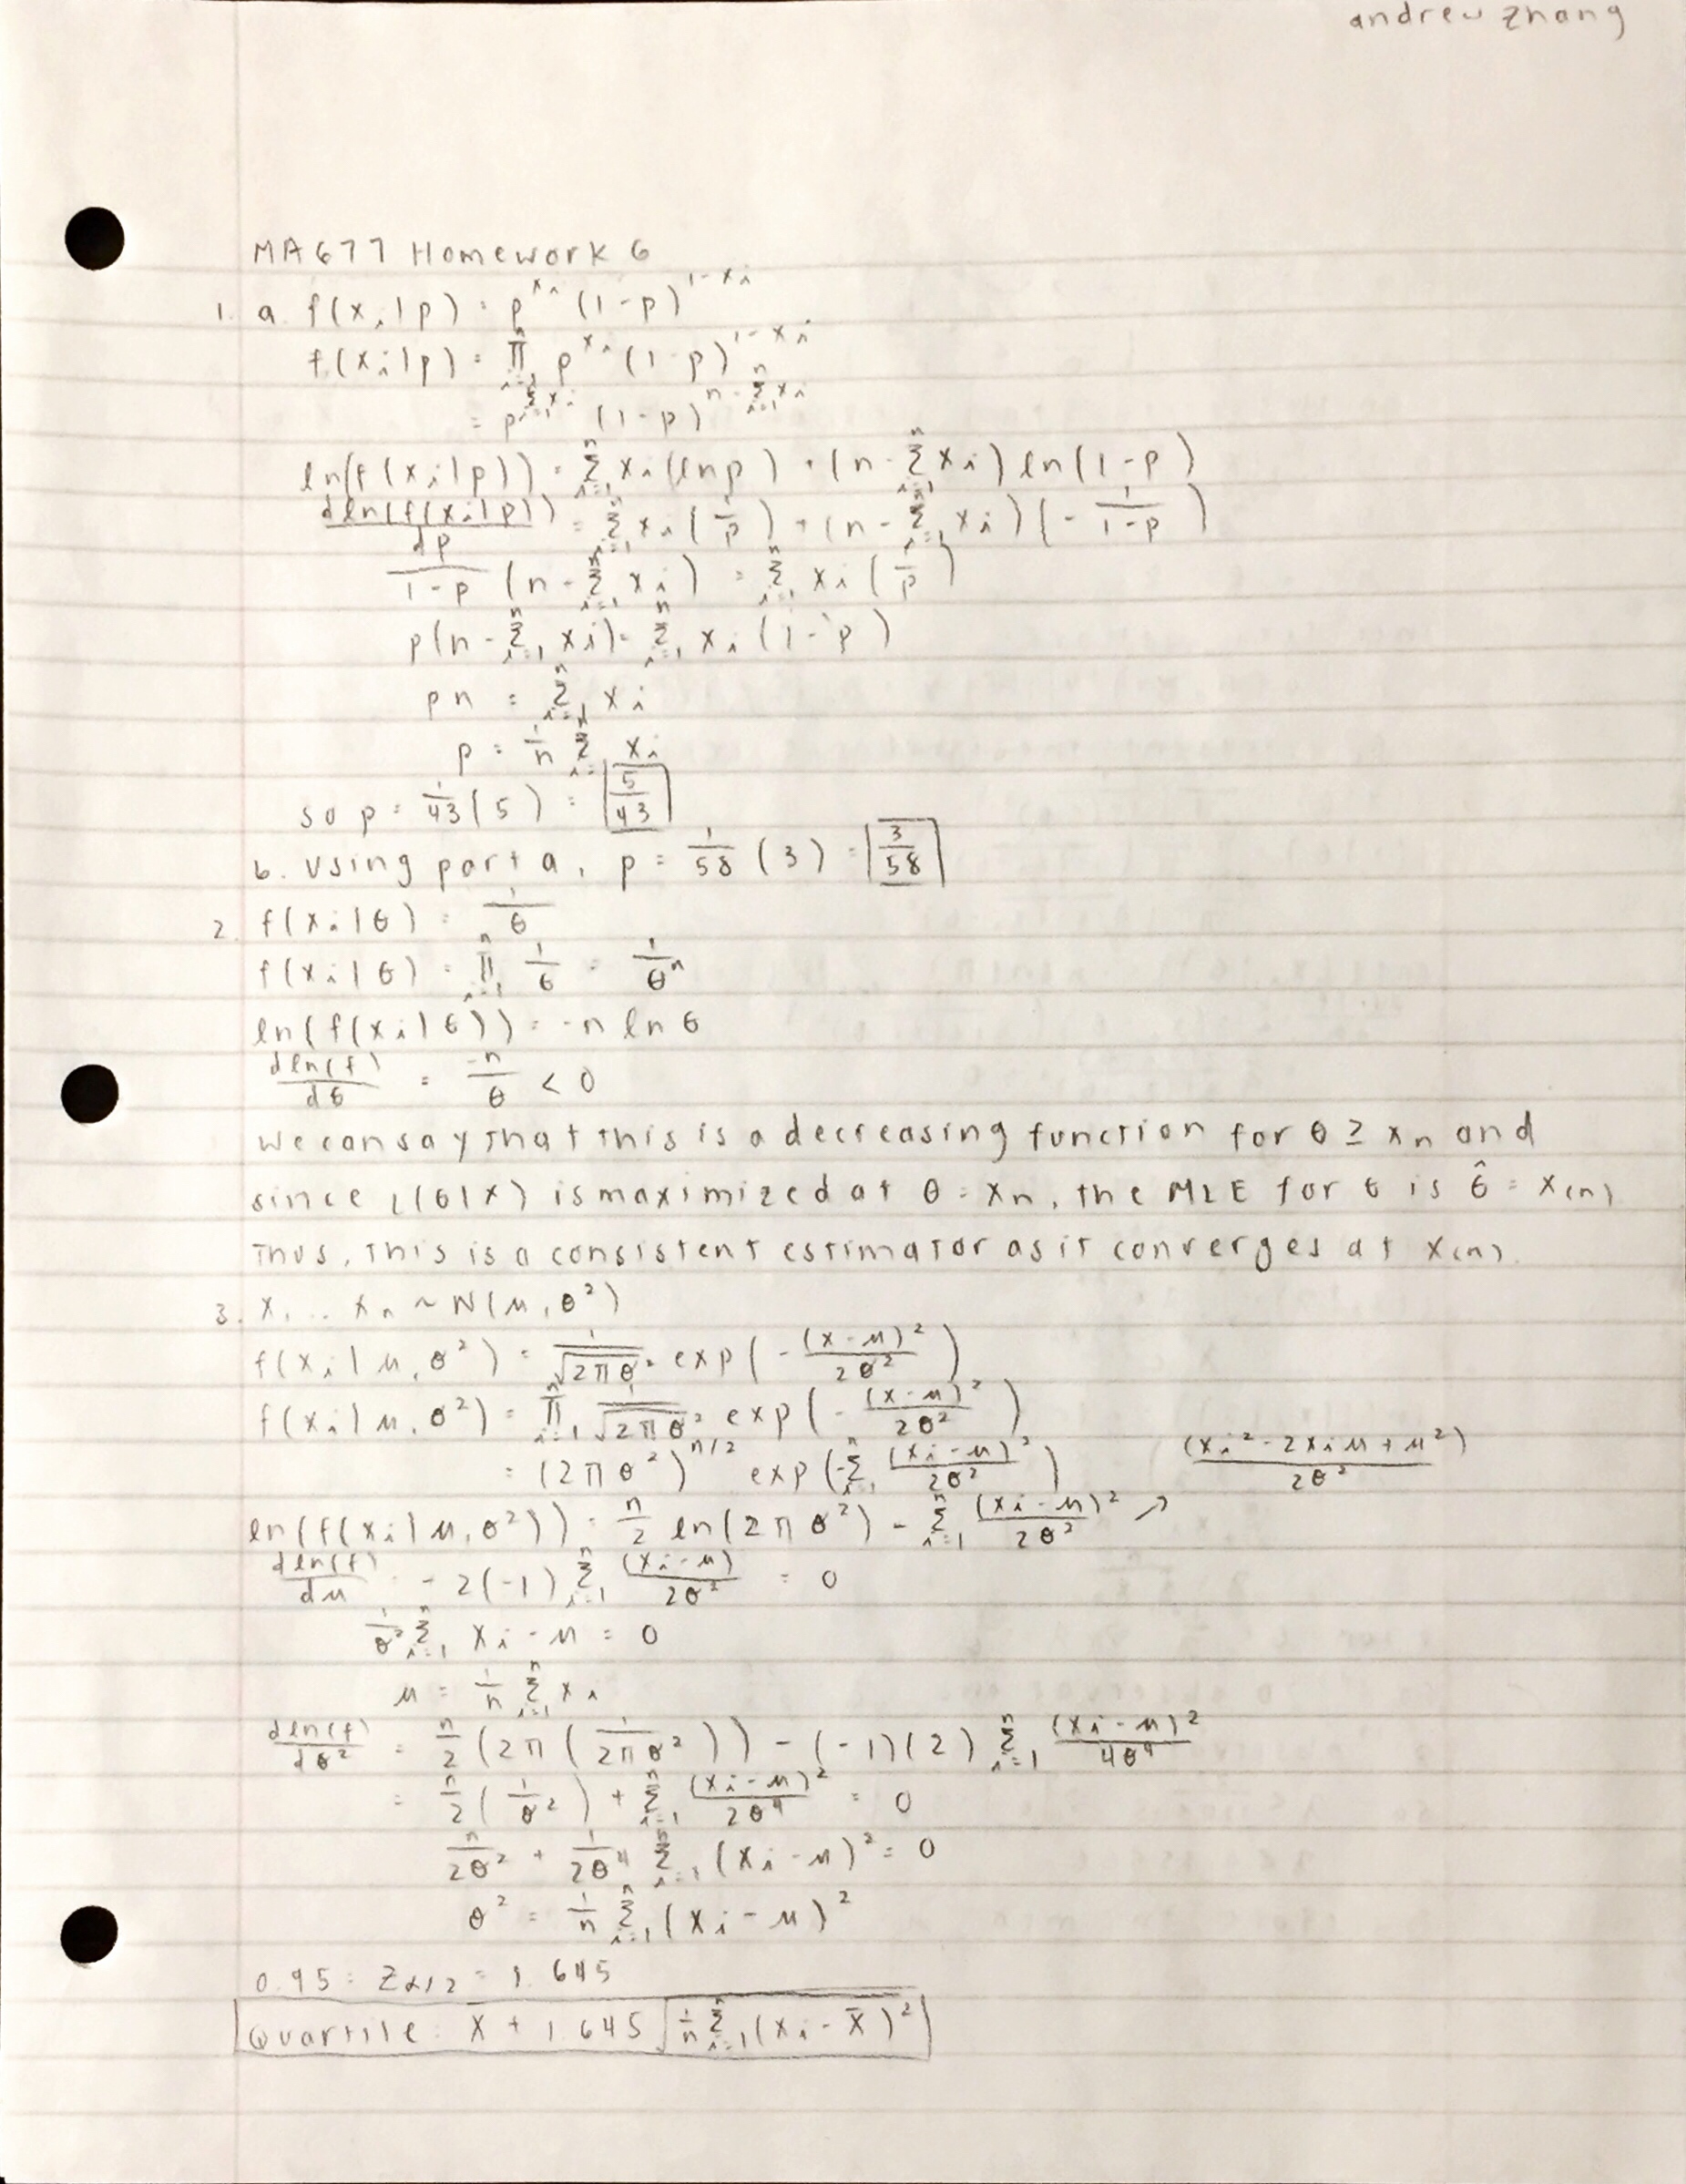 andrew zhang
MA677 Homework 6
1. a. f(x_i|p) = p^{x_i} (1-p)^{1-x_i}
f(x_i|p) = ∏_{i=1}^n p^{x_i} (1-p)^{1-x_i}
= p^{∑_{i=1}^n x_i} (1-p)^{n-∑_{i=1}^n x_i}
ln(f(x_i|p)) = ∑_{i=1}^n x_i (ln p) + (n-∑_{i=1}^n x_i) ln(1-p)
dln(f(x_i|p))/dp = ∑_{i=1}^n x_i (1/p) + (n-∑_{i=1}^n x_i) (-1/(1-p))
1/(1-p) (n-∑_{i=1}^n x_i) = ∑_{i=1}^n x_i (1/p)
p(n-∑_{i=1}^n x_i) = ∑_{i=1}^n x_i (1-p)
pn = ∑_{i=1}^n x_i
p = 1/n ∑_{i=1}^n x_i
so p = 1/43 (5) = 5/43
b. Using part a, p = 1/58 (3) = 3/58
2. f(x_i|θ) = 1/θ
f(x_i|θ) = ∏_{i=1}^n 1/θ = 1/θ^n
ln(f(x_i|θ)) = -n ln θ
dln(f)/dθ = -n/θ < 0
We can say that this is a decreasing function for θ ≥ x_n and
since L(θ|x) is maximized at θ = x_n, the MLE for θ is θ̂ = x_(n)
Thus, this is a consistent estimator as it converges at x_(n).
3. x_1 ... x_n ~ N(μ, θ²)
f(x_i|μ, θ²) = 1/√(2πθ²) exp(-(x-μ)²/2θ²)
f(x_i|μ, θ²) = ∏_{i=1}^n 1/√(2πθ²) exp(-(x-μ)²/2θ²)
= (2πθ²)^{n/2} exp(-∑_{i=1}^n (x_i-μ)²/2θ²) (x_i²-2x_iμ+μ²)/2θ²
ln(f(x_i|μ, θ²)) = n/2 ln(2πθ²) - ∑_{i=1}^n (x_i-μ)²/2θ² ↗
dln(f)/dμ = -2(-1) ∑_{i=1}^n (x_i-μ)/2θ² = 0
1/θ² ∑_{i=1}^n x_i-μ = 0
μ = 1/n ∑_{i=1}^n x_i
dln(f)/dθ² = n/2 (2π (1/2πθ²)) - (-1)(2) ∑_{i=1}^n (x_i-μ)²/4θ⁴
= n/2 (1/θ²) + ∑_{i=1}^n (x_i-μ)²/2θ⁴ = 0
n/2θ² + 1/2θ⁴ ∑_{i=1}^n (x_i-μ)² = 0
θ² = 1/n ∑_{i=1}^n (x_i-μ)²
0.95 = Z_{α/2} = 1.645
Quartile: x̄ + 1.645 √(1/n ∑_{i=1}^n (x_i-x̄)²)